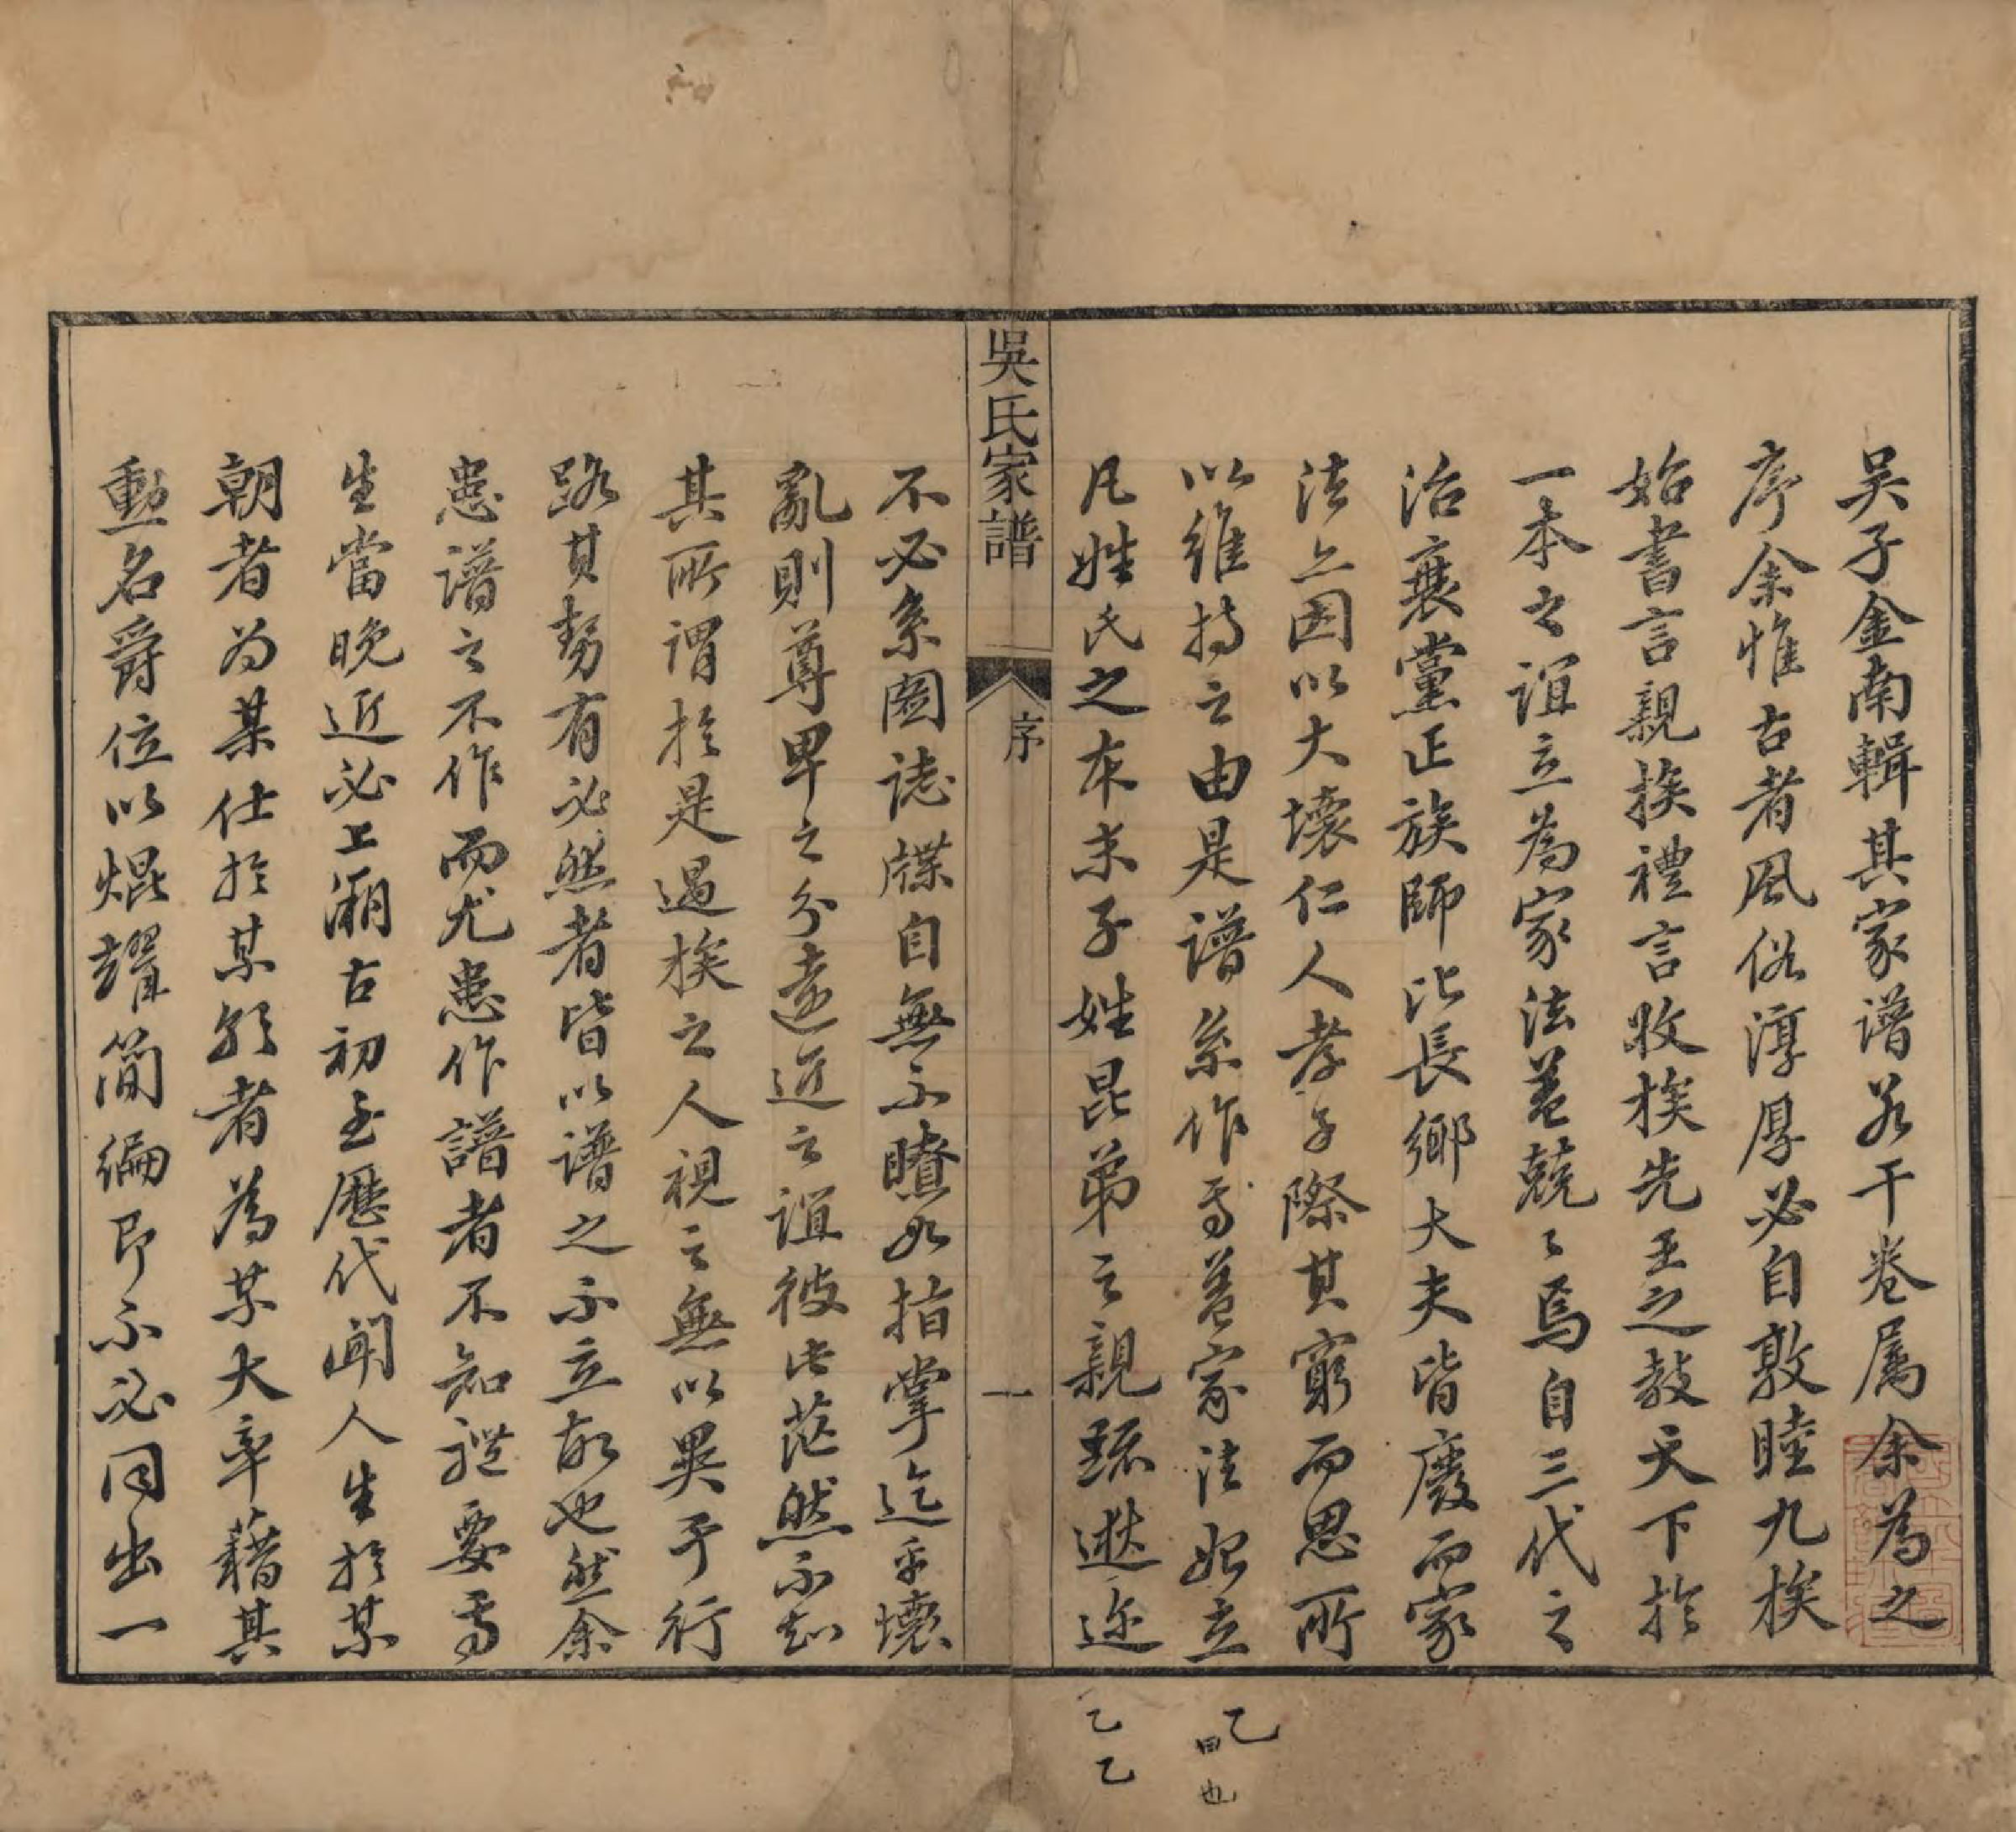 吴子金南輯其家谱若干卷属余為之
序余惟古者風俗淳厚必自敦睦九族
始書言親族禮言收族先王之教天下於
一本之誼立為家法蓋兢〻焉自三代之
治衰黨正族師比長鄉大夫皆廢而家
法亦因以大壞仁人孝子際其窮而思所
以維持之由是谱系作焉蓋家法始立
凡姓氏之本末子姓昆弟之親疏遐迩
不必系圖誌牒自無不瞭如指掌迄乎壞
亂則尊卑之分遠近之誼彼此茫然不知
其所謂於是遇族之人視之無以異于行
路其勢有必然者皆以谱之不立故也然余
患谱之不作而尤患作譜者不知體要焉
生當晚近必上溯古初至歷代聞人生於某
朝者为某仕於某朝者為某大率藉其
勳名爵位以焜耀简編即不必同出一
吳氏家譜
序
一
乙
曰也
乙
乙